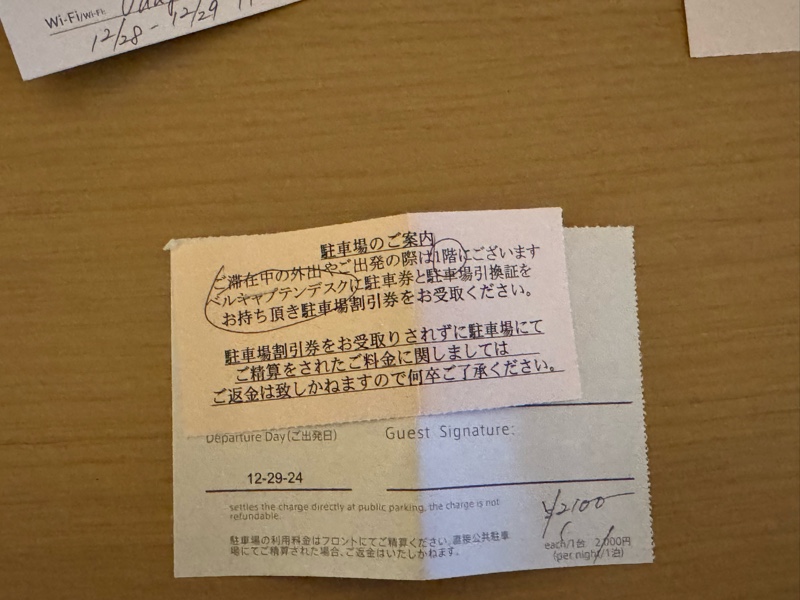 Wi-Fi/Wi-Fi:
12/28 - 12/29
駐車場のご案内
ご滞在中の外出やご出発の際は1階にございます
ベルキャプテンデスクに駐車券と駐車場引換証を
お持ち頂き駐車場割引券をお受取ください。
駐車場割引券をお受取りされずに駐車場にて
ご精算をされたご料金に関しましては
ご返金は致しかねますので何卒ご了承ください。
Departure Day(ご出発日)
Guest Signature:
12-29-24
settles the charge directly at public parking, the charge is not
refundable.
¥2100
駐車場の利用料金はフロントにてご精算ください。直接公共駐車
場にてご精算された場合、ご返金はいたしかねます。
each/1台 2,000円
(per night/1泊)